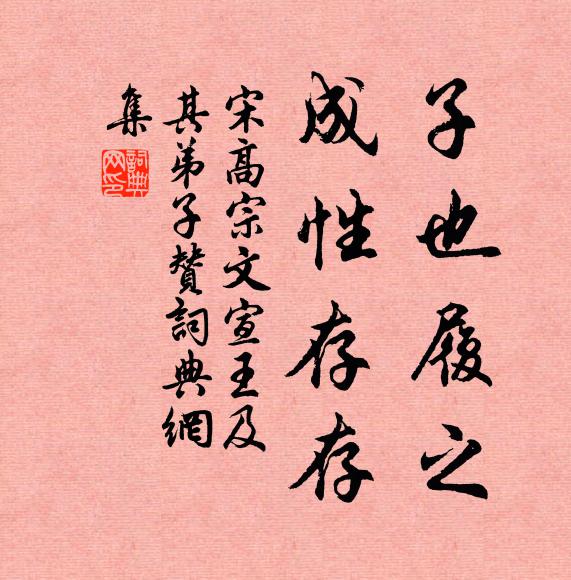 子也履之
成性存存
宋高宗文宣王及
其弟子贊詞典網
集
詞典網印